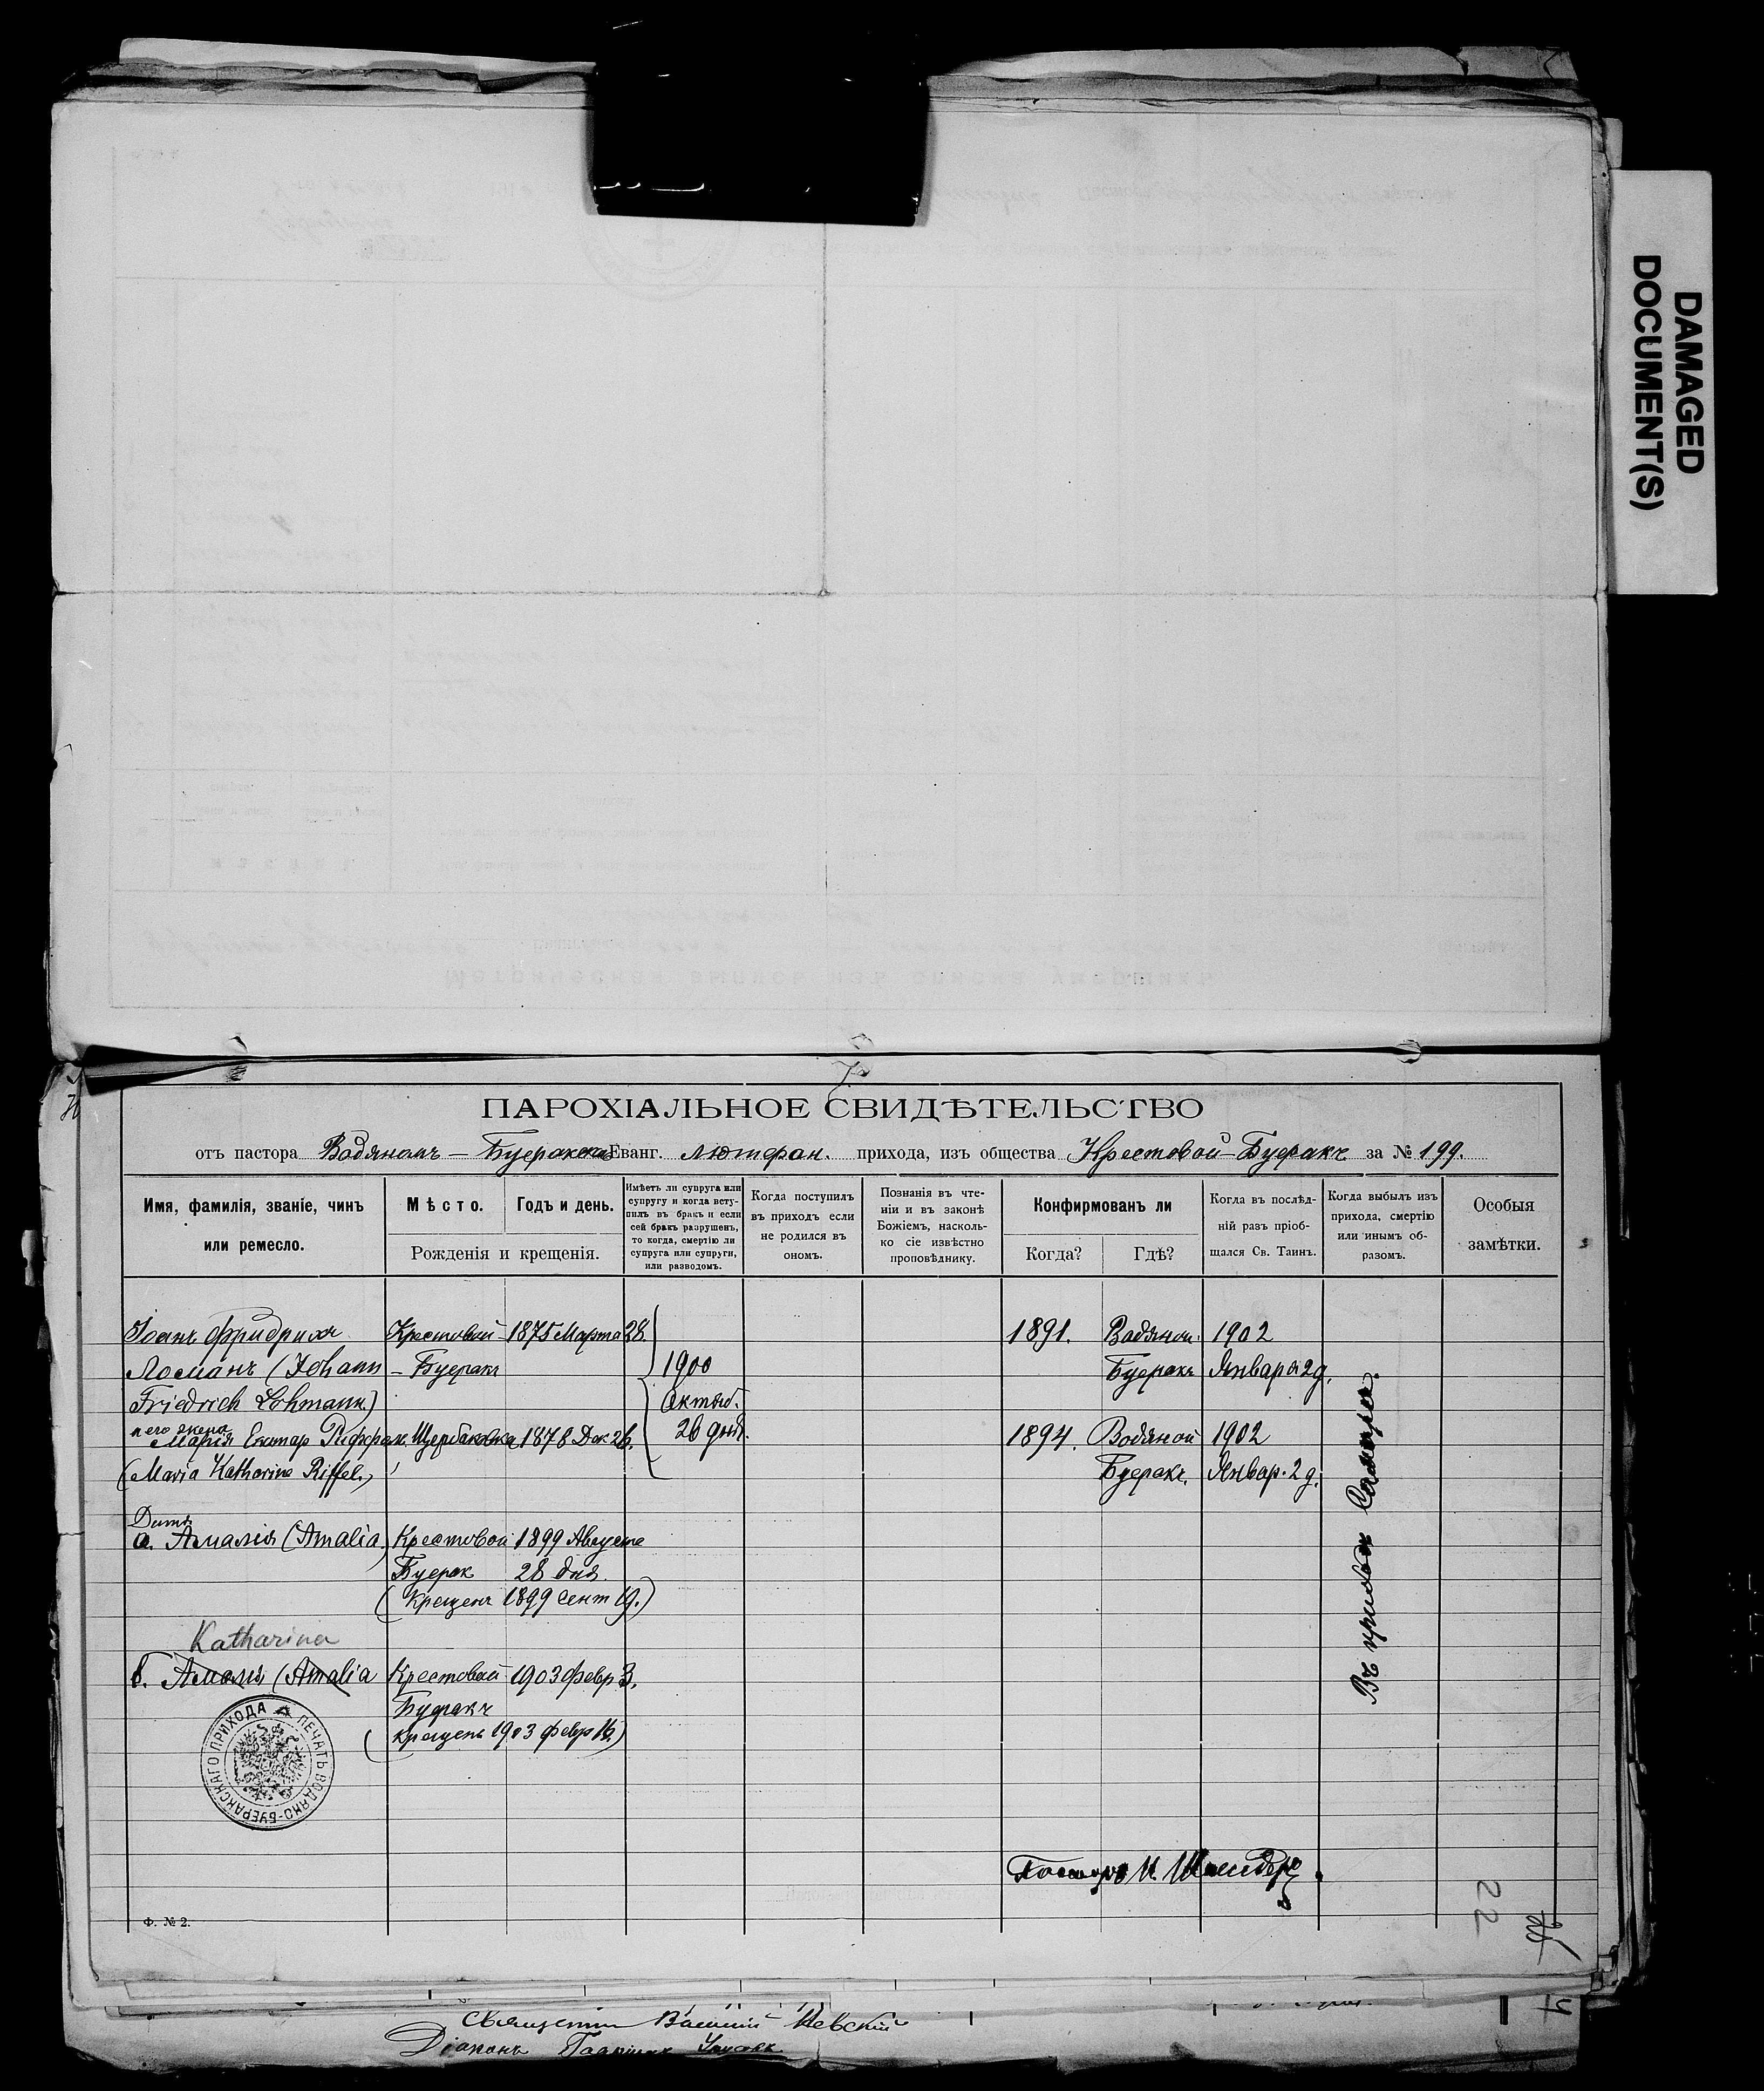 DAMAGED
DOCUMENT(S)
ПАРОХІАЛЬНОЕ СВИДѢТЕЛЬСТВО
отъ пастора Водяномъ - Буеракскаго Еванг. лютеран. прихода, изъ общества Крестовой-Буеракъ за № 199.
Имя, фамилія, званіе, чинъ
или ремесло.
Мѣсто.
Годъ и день.
Рожденія и крещенія.
Имѣетъ ли супруга или
супругу и когда всту-
пилъ въ бракъ и если
сей бракъ разрушенъ,
то когда, смертію ли
супруга или супруги,
или разводомъ.
Когда поступилъ
въ приходъ если
не родился въ
ономъ.
Познанія въ чте-
ніи и въ законѣ
Божіемъ, насколь-
ко сіе извѣстно
проповѣднику.
Конфирмованъ ли
Когда?
Гдѣ?
Когда въ послѣд-
ній разъ пріоб-
щался Св. Таинъ.
Когда выбылъ изъ
прихода, смертію
или инымъ об-
разомъ.
Особыя
замѣтки.
Іоанъ Фридрихъ Крестовый 1875 Марта 28. 1891. Водяной 1902
Ломанъ (Johann - Буеракъ 1900 Буеракъ Января 2 д.
Friedrich Lohmann) Октяб.
и его жена 26 дня.
Марія Екатар Риффель. Щербаковка 1878 Дек 26. 1894. Водяной 1902
(Maria Katharine Riffel.) Буеракъ. Январ. 2 д.
Дети
а. Амалія (Amalia) Крестовой 1899 Августа
Буерак 28 дня.
(Крещенъ 1899 Сент 19.)
Katharina
б. Амалия (Amalia Крестовый 1903 февр 3.
Буеракъ
(крещенъ 1903 февр 16.)
Въ приходъ
ПЕЧАТЬ ВОДЯНО-БУЕРАКСКАГО ПРИХОДА
Пасторъ И. Шнейдеръ.
22
Ф. № 2.
Священникъ Василій Невскій
Діаконъ